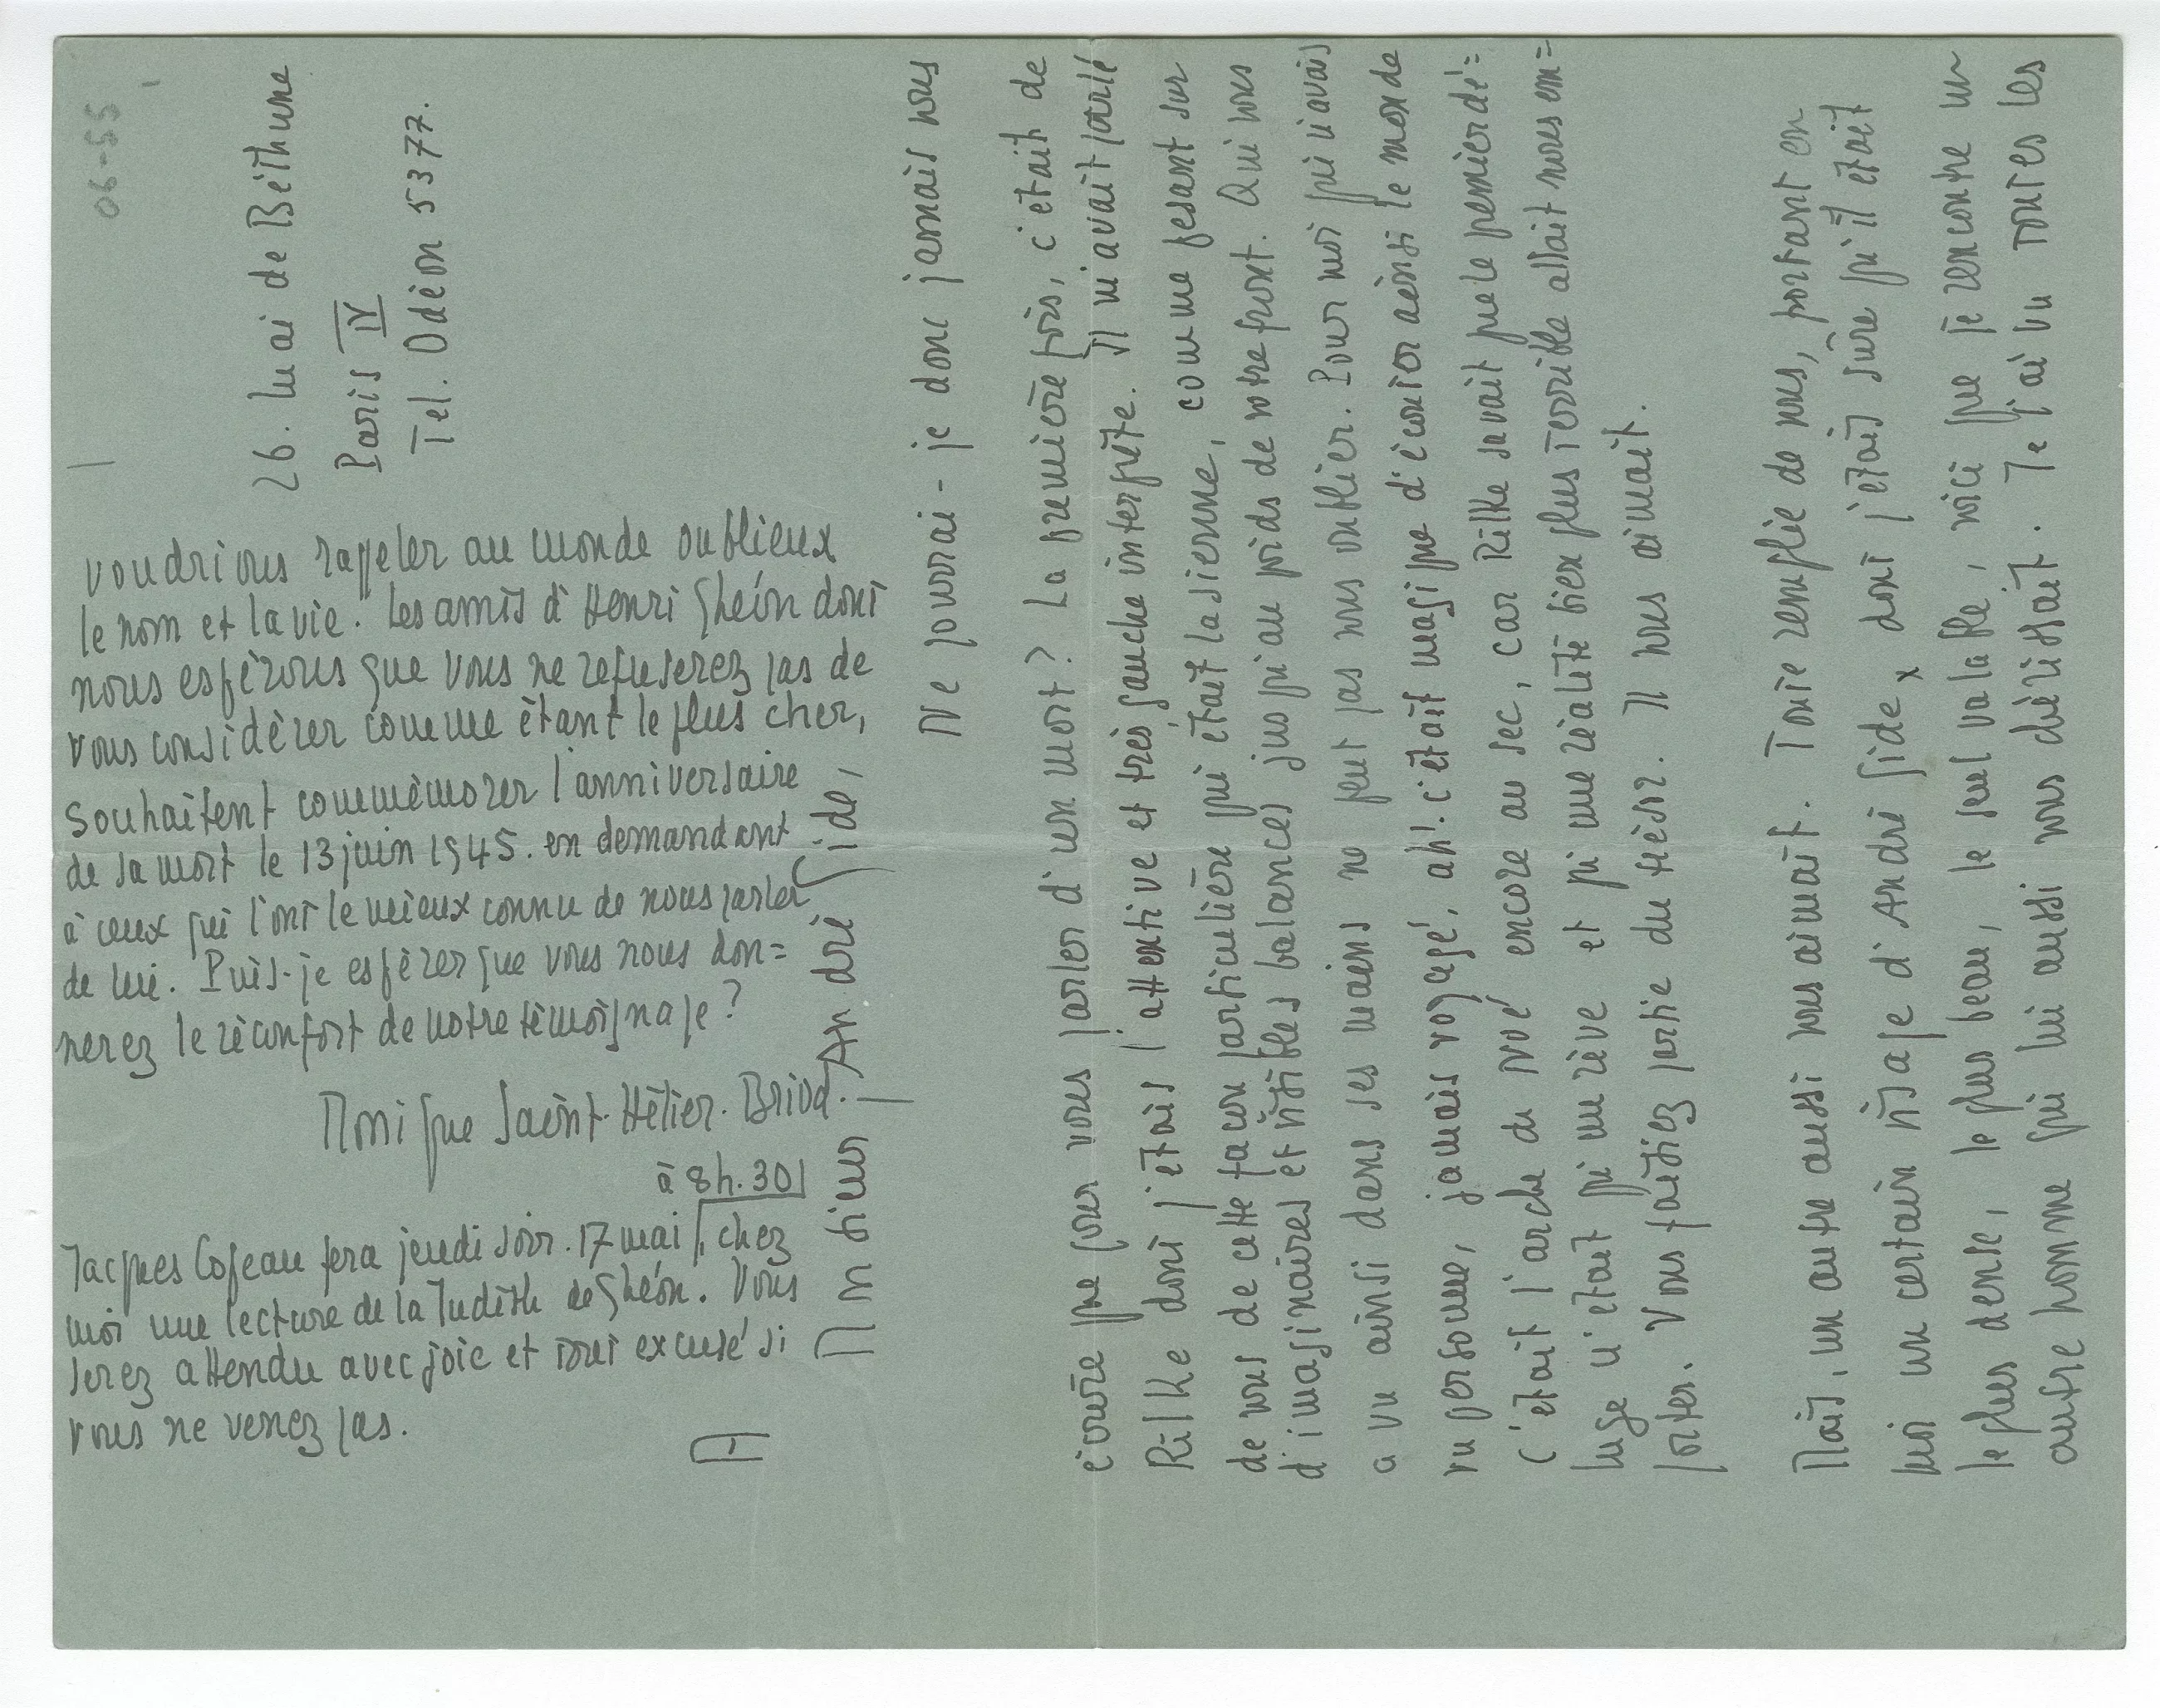 06-55
26. Quai de Béthune
Paris IV
Tel. Odéon 53 77.
Monsieur André Gide,
Ne pourrai-je donc jamais vous
écrire que pour vous parler d'un mort? La première fois, c'était de
Rilke dont j'étais l'attentive et très gauche interprète. Il m'avait parlé
de vous de cette façon particulière qui était la sienne, comme pesant sur
d'imaginaires et visibles balances jusqu'au poids de votre front. Qui vous
a vu ainsi dans ses mains ne peut pas vous oublier. Pour moi qui n'avais
vu personne, jamais voyagé, ah! c'était magique d'écouter ainsi le monde
c'était l'arche de Noé encore au sec, car Rilke savait que le premier dé=
luge n'était qu'un rêve et qu'une réalité bien plus terrible allait nous em=
porter. Vous faisiez partie du trésor. Il vous aimait.
Mais, un autre aussi vous aimait. Toute remplie de vous, portant en
moi un certain visage d'André Gide, dont j'étais sûre qu'il était
le plus dense, le plus beau, le seul valable, voici que je rencontre un
autre homme qui lui aussi vous chérissait. Je l'ai vu toutes les
voudrions rappeler au monde oublieux
le nom et la vie. Les amis d'Henri Ghéon dont
nous espérons que vous ne refuserez pas de
vous considérer comme étant le plus cher,
souhaitent commémorer l'anniversaire
de sa mort le 13 juin 1945. en demandant
à ceux qui l'ont le mieux connu de nous parler
de lui. Puis-je espérer que vous nous don=
nerez le réconfort de votre témoignage?
Monique Saint-Hélier. Briod.
à 8h.30
Jacques Copeau fera jeudi soir. 17 mai, chez
moi une lecture de la Judith de Ghéon. Vous
serez attendu avec joie et tout excusé si
vous ne venez pas.